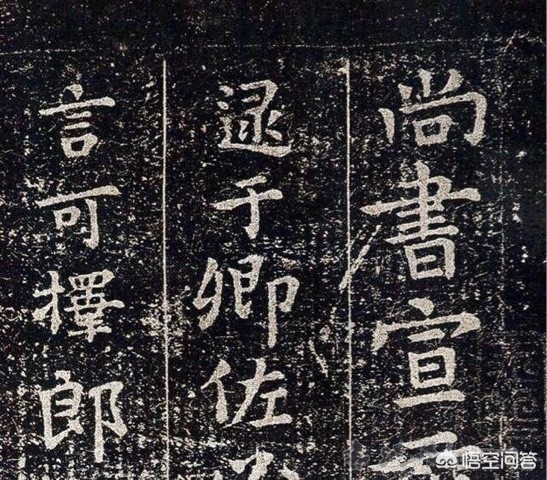 尚書宣
逮于卿佐
言可擇郎
悟空问答